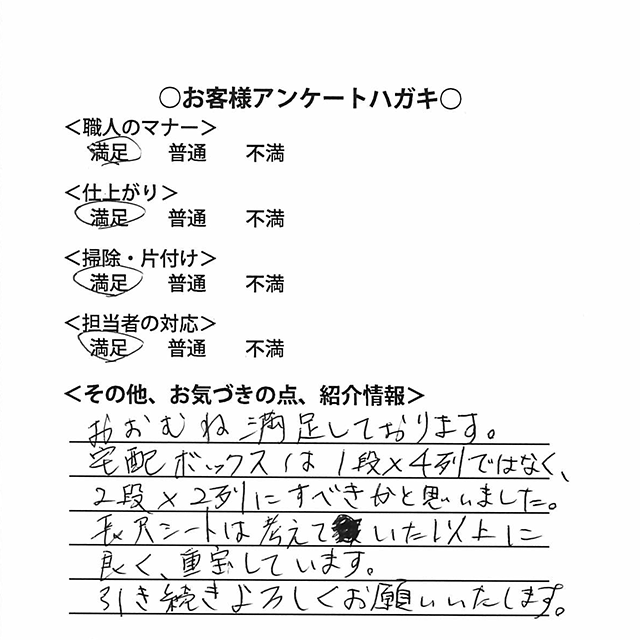 ○お客様アンケートハガキ○
＜職人のマナー＞
満足 普通 不満
＜仕上がり＞
満足 普通 不満
＜掃除・片付け＞
満足 普通 不満
＜担当者の対応＞
満足 普通 不満
＜その他、お気づきの点、紹介情報＞
おおむね満足しております。
宅配ボックスは1段×4列ではなく、
2段×2列にすべきかと思いました。
長尺シートは考えていた以上に
良く、重宝しています。
引き続きよろしくお願いいたします。